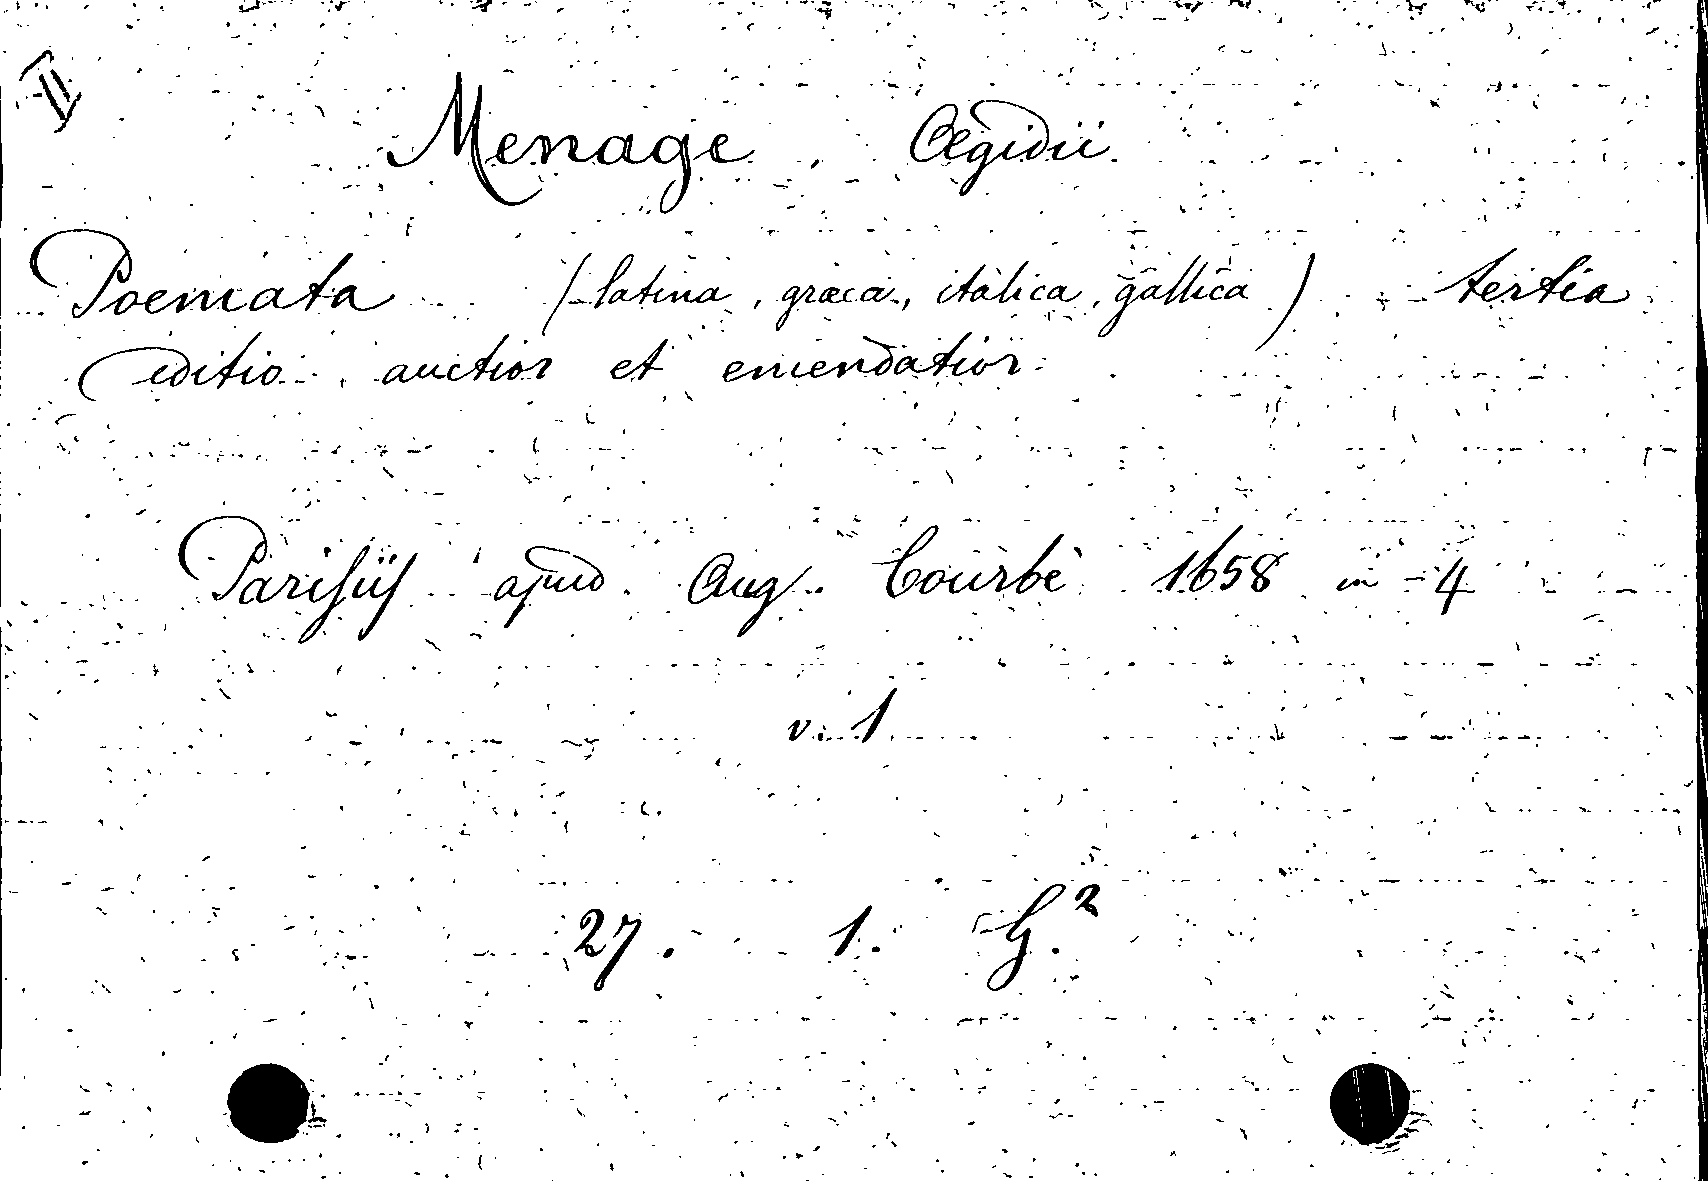 II
Menage Ægidii
Poemata (latina, græca, italica, gallica) tertia
editio, auctior et emendatior.
Parisijs apud Aug. Courbè 1658 in 4
v. 1
27. 1. G.2